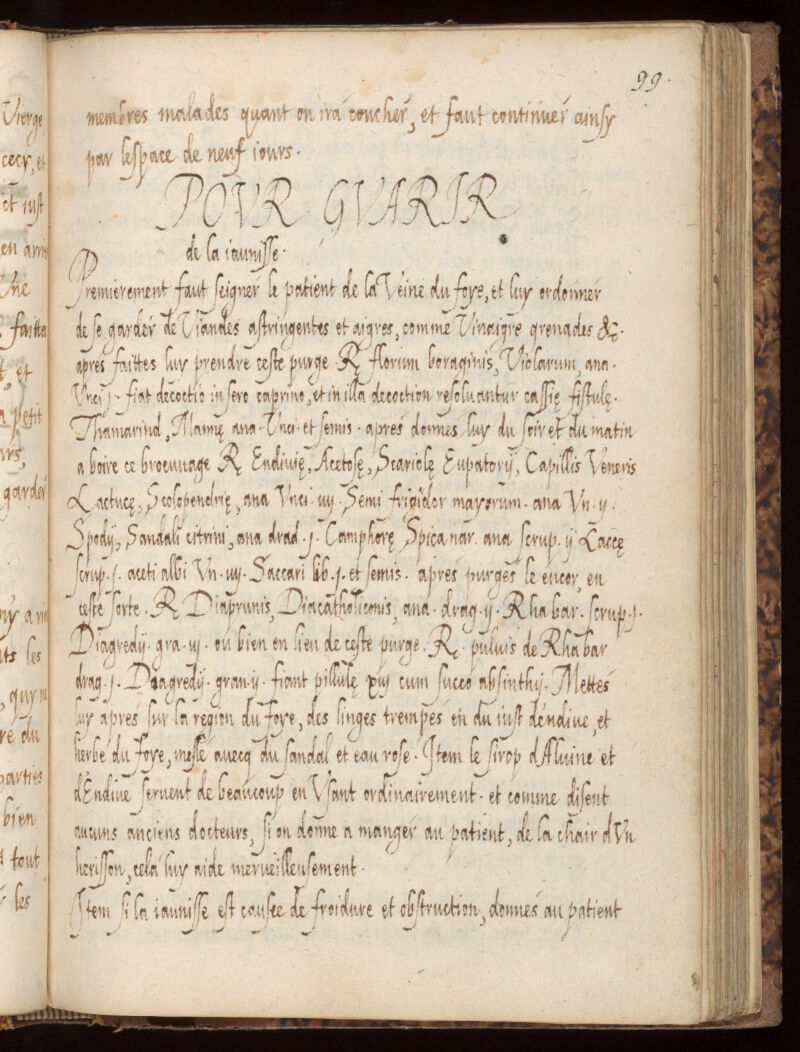 99.
membres malades quant on ira coucher, et faut continuer ainsy
par lespace de neuf iours.
POVR GVARIR
de la iaunisse.
Premierement faut seigner le patient de la Veine du foye, et luy ordonner
de se garder de Viandes astringentes et aigres, comme Vinaigre grenades &c.
apres faittes luy prendre ceste purge. ℞ florum boraginis, Violarum, ana.
Vnci j. fiat decoctio in sero caprino, et in illa decoction resoluantur cassię fistulę.
Thamarind, Mamę ana. Vnci. et semis. apres donnes luy du soir et du matin
a boire ce breuuage ℞ Endiuię, Acetosę, Scariolę Eupatorij, Capillis Veneris
Lactucę, Scolopendrię, ana Vnci. iij. Semi frigidor mayorum. ana Vn. ij.
Spodij, Sandali citrini, ana drad. j. Camphorę Spica nar. ana scrup. ij Laccę
scrup. j. aceti albi Vn. iij. Saccari lib. j. et semis. apres purges le encor, en
ceste sorte. ℞ Diaprunis, Diacatholiconis, ana. drag. ij. Rhabar. scrup. j.
Diagredij. gra. vj. ou bien en lieu de ceste purge. ℞. puluis de Rhabar
drag. j. Diagredij. gran. ij. fiant pillulę xiij cum succo absinthij. Mettes
luy apres sur la region du foye, des linges trempes en du iust dendiue, et
herbe du foye, mesle auecq du sandal et eau rose. Item le sirop dAluine et
dEndiue seruent de beaucoup en Vsant ordinairement. et comme disent
aucuns anciens docteurs, si on donne a manger au patient, de la chair dVn
herisson, cela luy aide merueilleusement.
Item si la iaunisse est causee de froidure et obstruction, donnes au patient
Vierge
cecy, et
et iust
Vne
et
petit
garder
les
parties
bien
tout
les